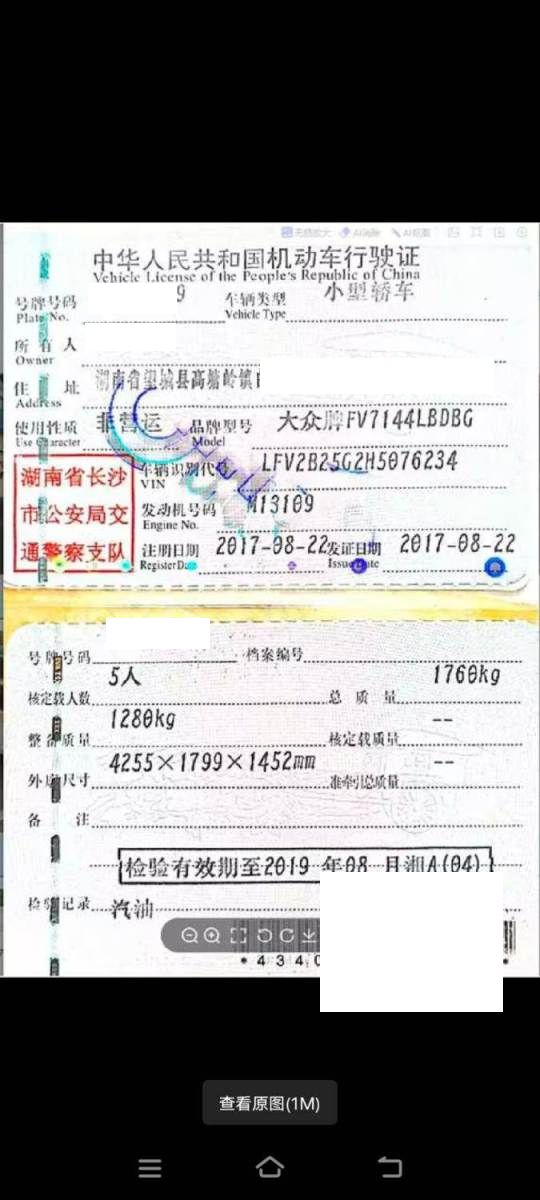 无损放大 AI消除 AI抠图
中华人民共和国机动车行驶证
Vehicle License of the People's Republic of China
号牌号码 9 车辆类型 小型轿车
Plate No. Vehicle Type
所有人
Owner
住址 湖南省望城县高塘岭镇
Address
使用性质 非营运 品牌型号 大众牌FV7144LBDBG
Use Character Model
湖南省长沙
市公安局交
通警察支队
车辆识别代号 LFV2B25G2H5076234
VIN
发动机号码 M13109
Engine No.
注册日期 2017-08-22 发证日期 2017-08-22
Register Date Issue Date
号牌号码 档案编号
核定载人数 5人 总质量 1760kg
整备质量 1280kg 核定载质量 --
外廓尺寸 4255×1799×1452mm 准牵引总质量 --
备注
检验有效期至2019年08月湘A(04)
检验记录 汽油
*4340
查看原图(1M)